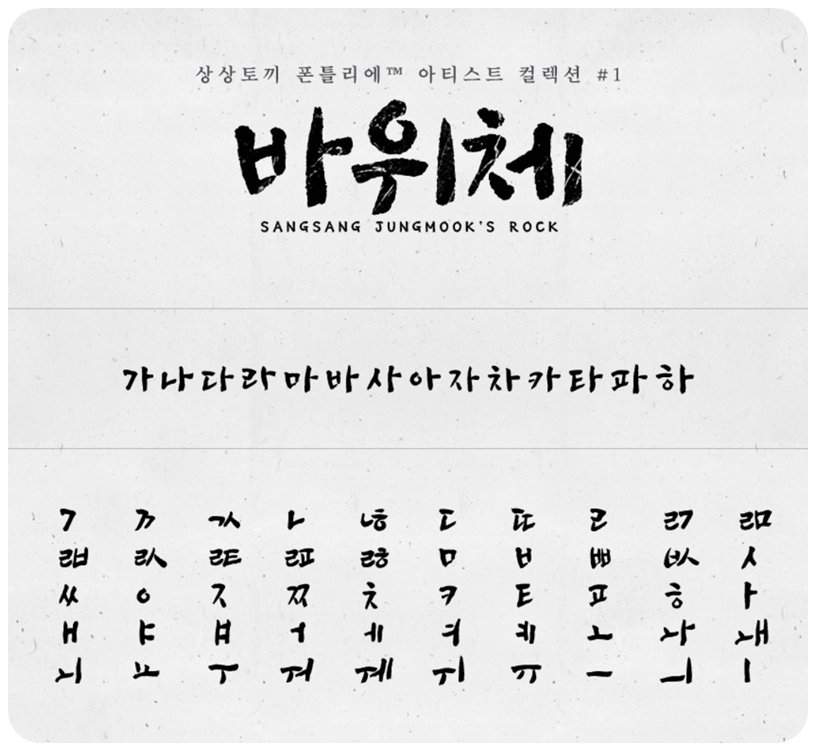 상상토끼 폰틀리에™ 아티스트 컬렉션 #1
바위체
SANGSANG JUNGMOOK'S ROCK
가나다라마바사아자차카타파하
ㄱ ㄲ ㄳ ㄴ ㄶ ㄷ ㄸ ㄹ ㄺ ㄻ
ㄼ ㄽ ㄾ ㄿ ㅀ ㅁ ㅂ ㅃ ㅄ ㅅ
ㅆ ㅇ ㅈ ㅉ ㅊ ㅋ ㅌ ㅍ ㅎ ㅏ
ㅐ ㅑ ㅒ ㅓ ㅔ ㅕ ㅖ ㅗ ㅘ ㅙ
ㅚ ㅛ ㅜ ㅝ ㅞ ㅟ ㅠ ㅡ ㅢ ㅣ